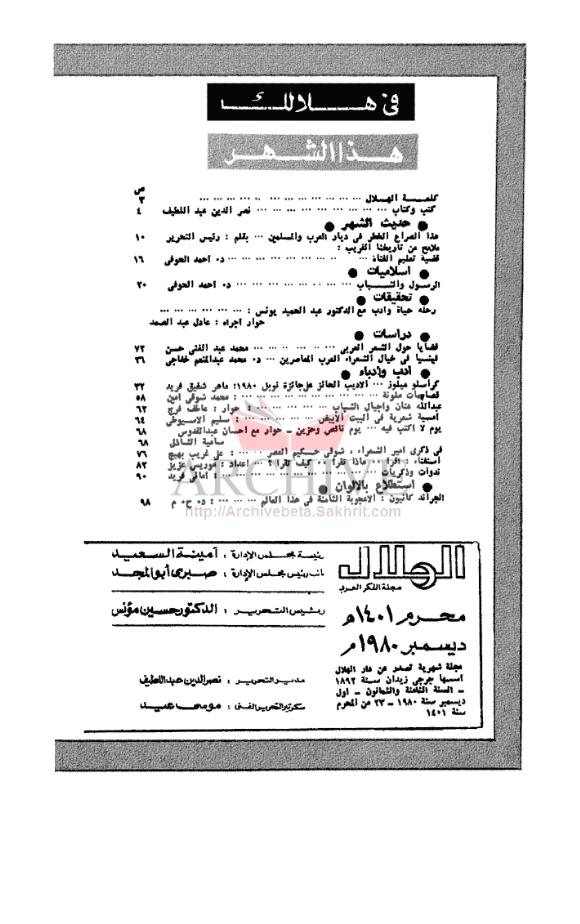 في هلالك
هذا الشهر
ص
كلمة الهلال ... ٣
كتب وكتاب ... نصر الدين عبد اللطيف ٤
● حديث الشهر ●
هذا الصراع الخطر في ديار العرب والمسلمين ... بقلم : رئيس التحرير ١٠
ملامح من تاريخنا القريب :
قضية تعليم الفتاة ... د٠ احمد الحوفى ١٦
● اسلاميات ●
الرسول والشباب ... د٠ احمد الحوفى ٢٠
● تحقيقات ●
رحلة حياة وادب مع الدكتور عبد الحميد يونس : ...
حوار اجراه : عادل عبد الصمد
● دراسات ●
قضايا حول الشعر العربى ... محمد عبد الغنى حسن ٧٢
فينسيا في خيال الشعراء العرب المعاصرين ... د٠ محمد عبدالمنعم خفاجى ٣٦
● ادب وادباء ●
كزاسلو ميلوز ... الاديب الحائز على جائزة نوبل ١٩٨٠: ماهر شفيق فريد ٣٢
قصاصات ملونة ... : محمد شوقى امين ٥٨
عبدالله عنان واجيال الشباب ... حوار : عاطف فرج ٦٢
امسية شعرية في البيت الأبيض ... : سليم الاسيوطى ٦٤
يوم لا اكتب فيه ... يوم ناقص وحزين - حوار مع احسان عبدالقدوس ٦٨
سامية الشاذلى ٦٨
في ذكرى امير الشعراء ، شوقى حكيم العصر ... : على غريب بهيج ٧٦
استفتاء : القراءة ماذا تقرأ؟ ... كيف تقرأ ؟ ... اعداد : موريس عزيز ٨٢
ندوات وذكريات ... : امانى فريد ٩٠
● استطلاع بالالوان ●
الجراند كانيون : الاعجوبة الثامنة في هذا العالم ... : د٠ ح٠ م ٩٨
ARCHIVE
http://Archivebeta.Sakhrit.com
الهلال
مجلة الفكر العربى
محرم ١٤٠١ هـ
ديسمبر ١٩٨٠ م
مجلة شهرية تصدر عن دار الهلال
اسسها جرجى زيدان سنة ١٨٩٢
- السنة الثامنة والثمانون - اول
ديسمبر سنة ١٩٨٠ - ٢٣ من المحرم
سنة ١٤٠١
رئيسة مجلس الإدارة : أمينة السعيد
نائب رئيس مجلس الإدارة : صبرى أبو المجد
رئيس التحرير : الدكتور حسين مؤنس
مدير التحرير : نصر الدين عبد اللطيف
سكرتير التحرير الفنى : موسى عبيد